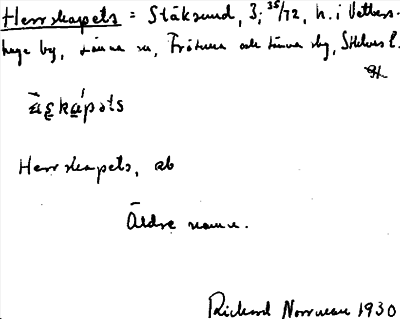 Herrskapets = Stäksund, 3; 35/72, h. i Vetters-
haga by, Länna sn, Frötuna och Länna skg, Sthlms l.
Herrskapets, ab
Äldre namn.
Rickard Norrman 1930